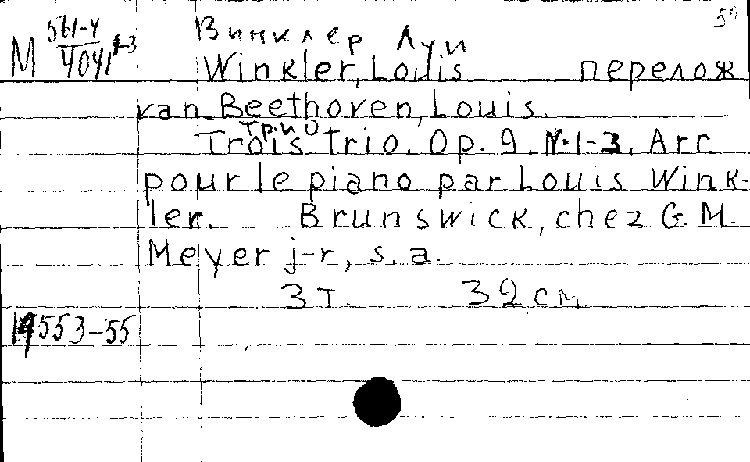 50
М 561-4/4041 1-3
Винклер Луи
Winkler, Louis перелож
van Beethoven, Louis.
Трио
Trois Trio. Op. 9. N. 1-3. Arr
pour le piano par Louis Wink-
ler. Brunswick, chez G. M.
Meyer j-r, s. a.
3 т. 32 см
14553-55